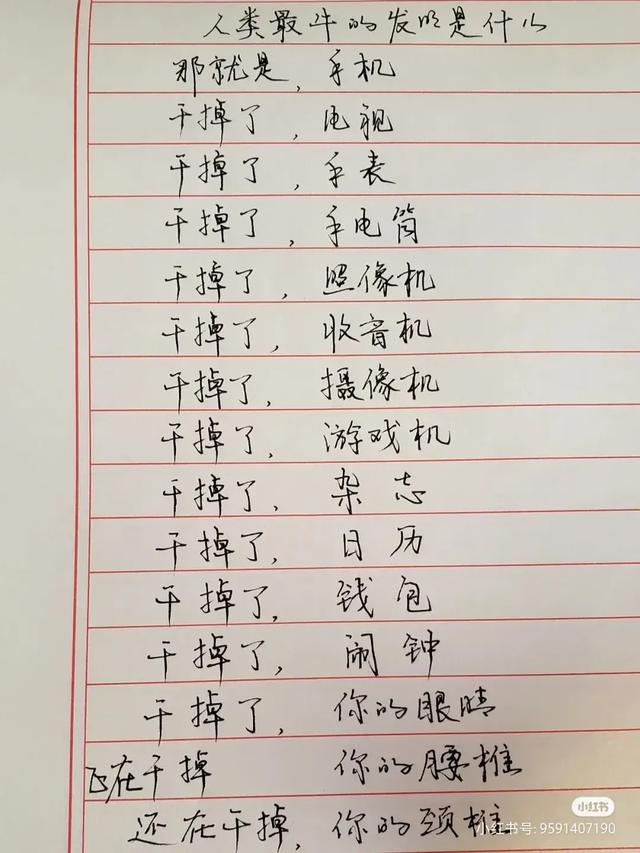 人类最牛的发明是什么
那就是,手机
干掉了,电视
干掉了,手表
干掉了,手电筒
干掉了,照像机
干掉了,收音机
干掉了,摄像机
干掉了,游戏机
干掉了,杂志
干掉了,日历
干掉了,钱包
干掉了,闹钟
干掉了,你的眼睛
在干掉 你的腰椎
还在干掉,你的颈椎
小红书
小红书号: 9591407190